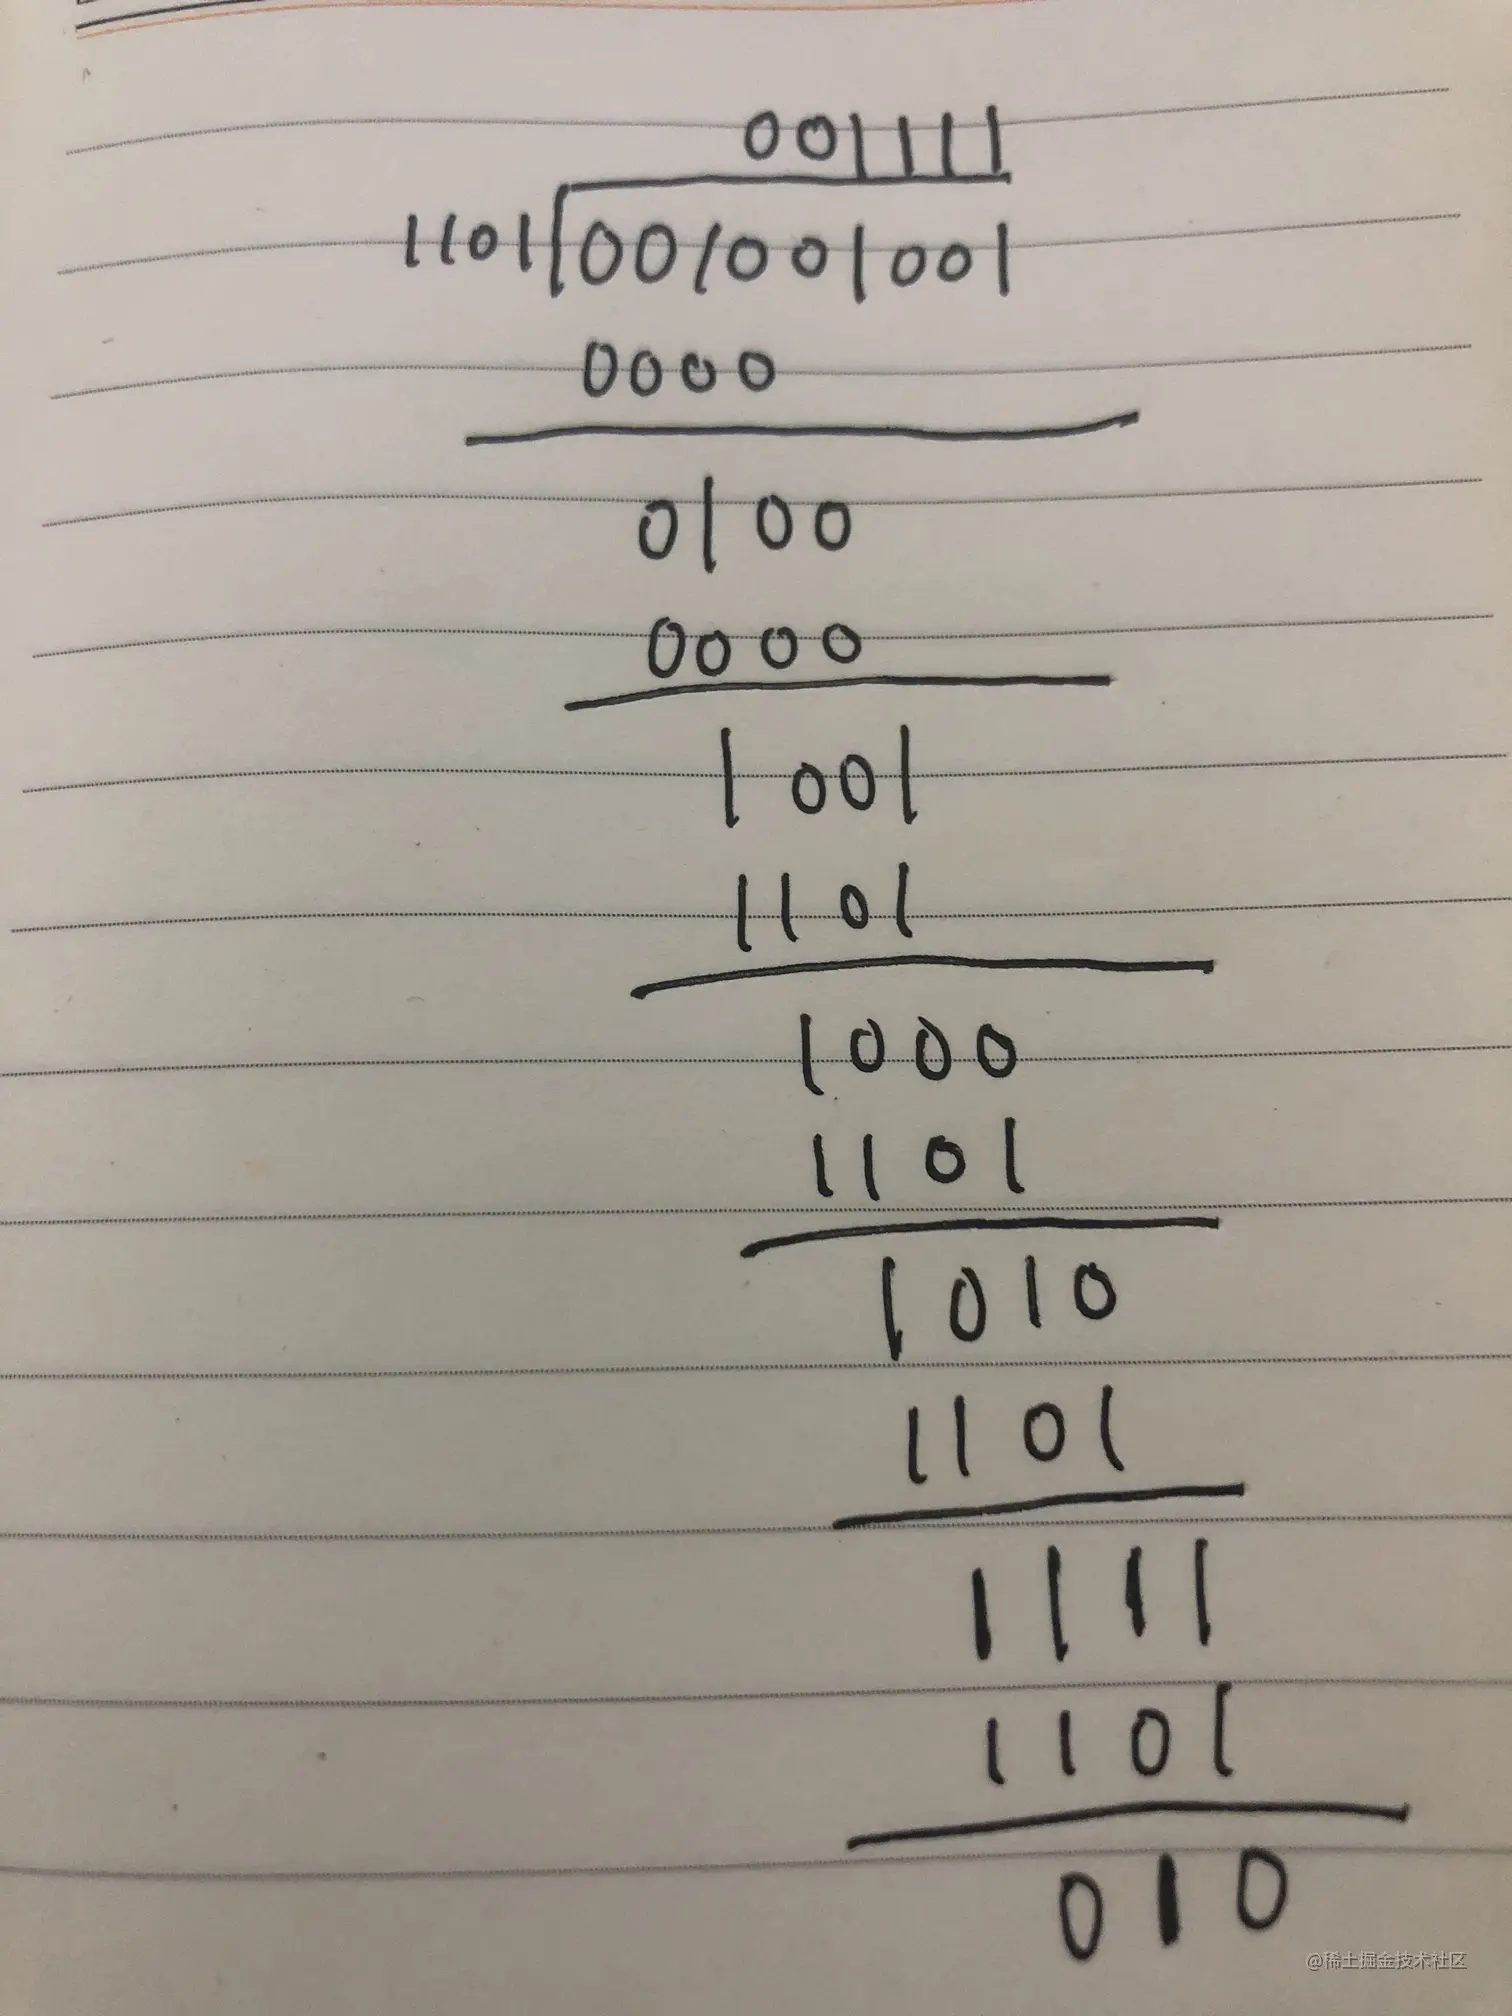 001111
1101 001001001
0000
0100
0000
1001
1101
1000
1101
1010
1101
1111
1101
010
@稀土掘金技术社区